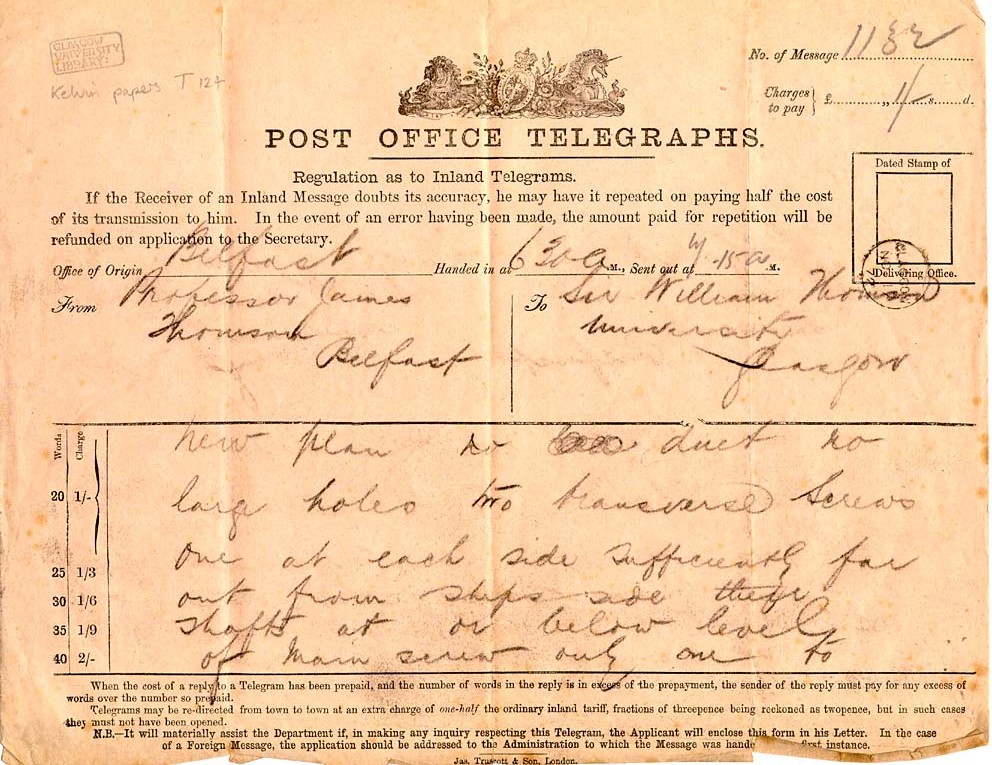 GLASGOW
UNIVERSITY
LIBRARY:
Kelvin papers T 124
No. of Message 1132
Charges to pay £ ,, 1/- s. d.
POST OFFICE TELEGRAPHS.
Regulation as to Inland Telegrams.
If the Receiver of an Inland Message doubts its accuracy, he may have it repeated on paying half the cost
of its transmission to him. In the event of an error having been made, the amount paid for repetition will be
refunded on application to the Secretary.
Dated Stamp of
Delivering Office.
GLASGOW
Office of Origin Belfast Handed in at 6 30 a M., Sent out at 7.15 a M.
From Professor James
Thomson
Belfast
To Sir William Thomson
University
Glasgow
Words Charge
new plan no duct no
20 1/- large holes two transverse screws
One at each side sufficiently far
25 1/3
30 1/6 out from ships side their
35 1/9 shafts at or below level
40 2/- of main screw only one to
When the cost of a reply to a Telegram has been prepaid, and the number of words in the reply is in excess of the prepayment, the sender of the reply must pay for any excess of
words over the number so prepaid.
Telegrams may be re-directed from town to town at an extra charge of one-half the ordinary inland tariff, fractions of threepence being reckoned as twopence, but in such cases
they must not have been opened.
N.B.—It will materially assist the Department if, in making any inquiry respecting this Telegram, the Applicant will enclose this form in his Letter. In the case
of a Foreign Message, the application should be addressed to the Administration to which the Message was hande first instance.
Jas. Truscott & Son, London.